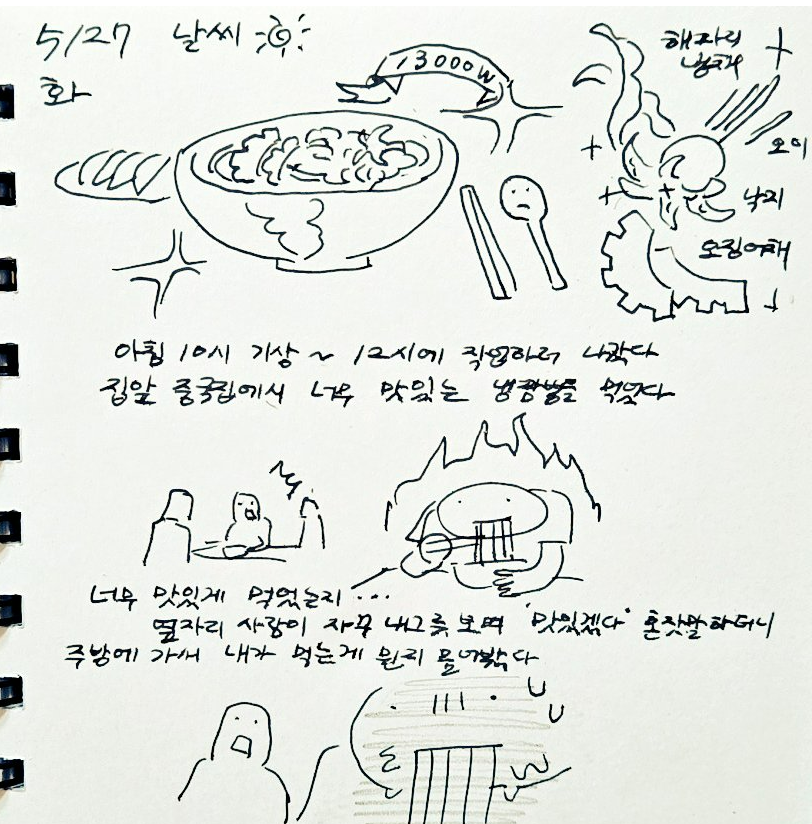 5/27 날씨
화
13000W
해파리
냉채
오이
낙지
오징어채
아침 10시 기상 ~ 12시에 작업하러 나갔다
집앞 중국집에서 너무 맛있는 먹었다
너무 맛있게 먹었는지...
옆자리 사람이 자꾸 내그릇 보며 '맛있겠다' 혼잣말하더니
주방에 가서 내가 먹는게 뭔지 물어봤다